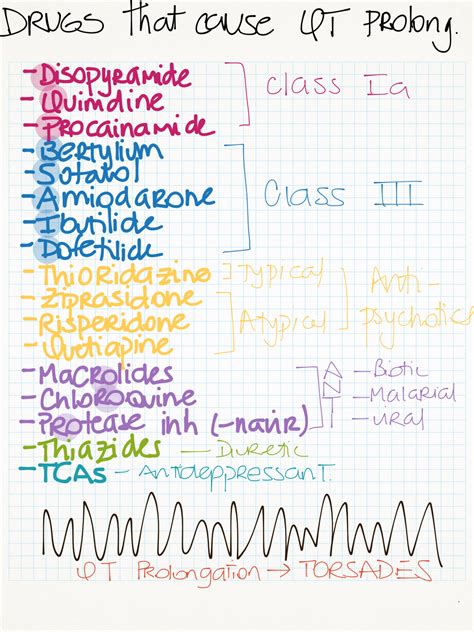 DRUGS that cause QT Prolong.
- Disopyramide
- Quinidine
- Procainamide
Class Ia
- Bertylium
- Sotalol
- Amiodarone
- Ibutilide
- Dofetilide
Class III
- Thioridazine
Typical
- Ziprasidone
- Risperidone
- Quetiapine
Atypical
Anti-
psychotics
- Macrolides
- Chloroquine
- Protease inh (-navir)
A - Biotic
N - Malarial
T - viral
- Thiazides - Diuretic
- TCAs - Antideppressant.
QT Prolongation → TORSADES